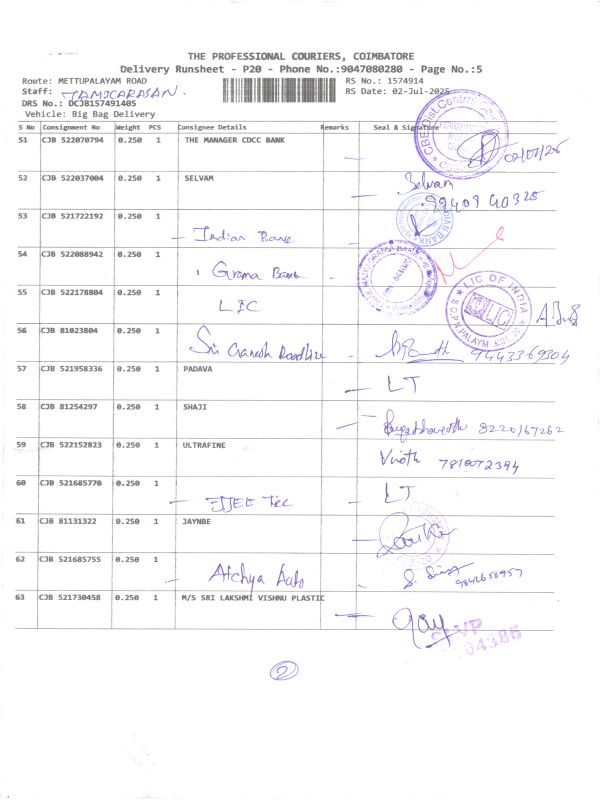 THE PROFESSIONAL COURIERS, COIMBATORE
Delivery Runsheet - P20 - Phone No.:9047080280 - Page No.:5
Route: METTUPALAYAM ROAD RS No.: 1574914
Staff: TAMILARASAN. Big Bag
DRS No.: DCJB157491405 RS Date: 02-Jul-2025
Vehicle: Big Bag Delivery
S No Consignment No Weight PCS Consignee Details Remarks Seal & Signature
51 CJB 522070794 0.250 1 THE MANAGER CDCC BANK 02/07/25
52 CJB 522037004 0.250 1 SELVAM Selvam
53 CJB 521722192 0.250 1 Indian Bank
54 CJB 522088942 0.250 1 Grama Bank
55 CJB 522178804 0.250 1 LIC LIC OF INDIA
56 CJB 81023804 0.250 1 Sri Ganesh Roadlize 9443369304
57 CJB 521958336 0.250 1 PADAVA LT
58 CJB 81254297 0.250 1 SHAJI 8220167262
59 CJB 522152823 0.250 1 ULTRAFINE Vinoth 7810072394
60 CJB 521685770 0.250 1 LT
61 CJB 81131322 0.250 1 JAYNBE
62 CJB 521685755 0.250 1 Atchya Auto 9842658957
63 CJB 521730458 0.250 1 M/S SRI LAKSHMI VISHNU PLASTIC
2